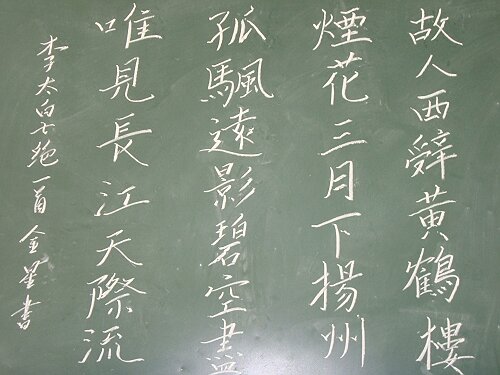 故人西辭黃鶴樓
煙花三月下揚州
孤颿遠影碧空盡
唯見長江天際流
李太白七絕一首 金星書